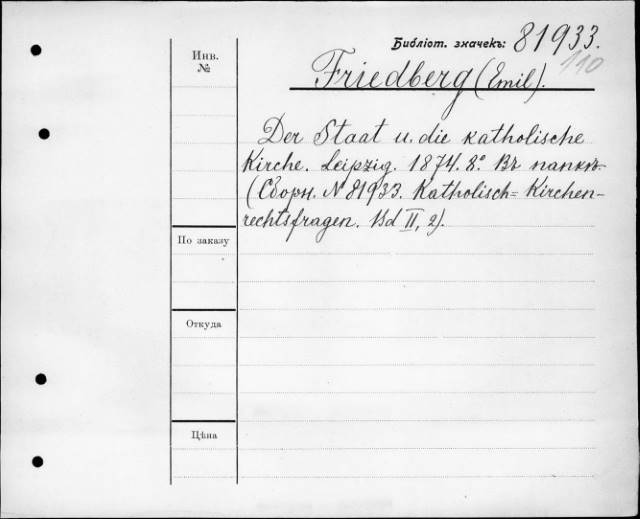 Библіот. значекъ: 81933.
110
Инв.
№
Friedberg (Emil).
Der Staat u. die katholische
Kirche. Leipzig. 1874. 8°. Въ папкѣ
(Сборн. № 81933. Katholisch=Kirchen-
rechtsfragen. Bd II, 2).
По заказу
Откуда
Цѣна